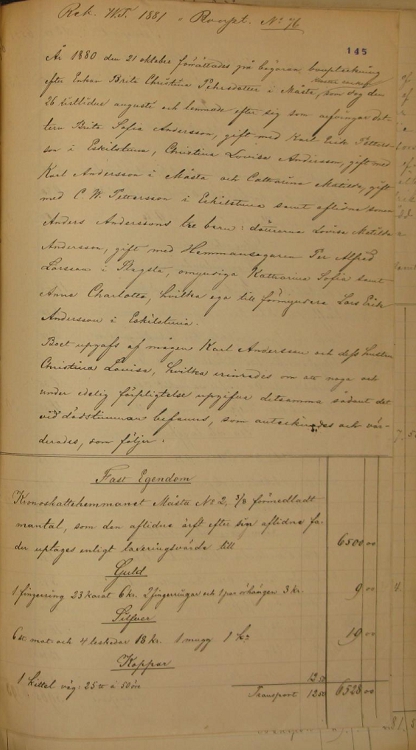 Rek. W.T. 1881 Rosvet. No 76
145
År 1880 den 21 oktober förrättades på begäran bouppteckning
efter Enkan Brita Christina Pehrsdotter i Måsta, som dog den
26 sistlidne augusti och lemnade efter sig som arfvingar dot-
tern Brita Sofia Andersson, gift med Karl Erik Petters-
son i Eskilstuna, Christina Lovisa Andersson, gift med
Karl Andersson i Måsta och Catharina Matilda, gift
med C. W. Pettersson i Eskilstuna samt aflidne sonen
Anders Anderssons tre barn: döttrarna Lovisa Matilda
Andersson, gift med Hemmansegaren Per Alfred
Larsson i omyndiga Katharina Sofia samt
Anna Charlotta, hvilka ega till förmyndare Lars Erik
Andersson i Eskilstuna.
Boet uppgafs af mågen Karl Andersson och dess hustru
Christina Lovisa, hvilka erinrades om att noga och
under edelig förpligtelse uppgifva detsamma sådant det
vid dödstimman befanns, som antecknades och vär-
derades, som följer:
Fast Egendom
Kronoskattehemmanet Måsta No 2, 3/8 förmedladt
mantal, som den aflidna ärft efter sin aflidne fa-
der uptages enligt taxeringsvärde till 6500 00
Guld
1 fingerring 23 karat 6 kr. 2 fingerringar och 1 par örhängen 3 kr. 9 00
Silfver
6 st. mat och 4 teskedar 18 kr. 1 1 kr 19 00
Koppar
1 kittel väg: 25 à 50 öre 12 50
Transport 12 50 6528 00